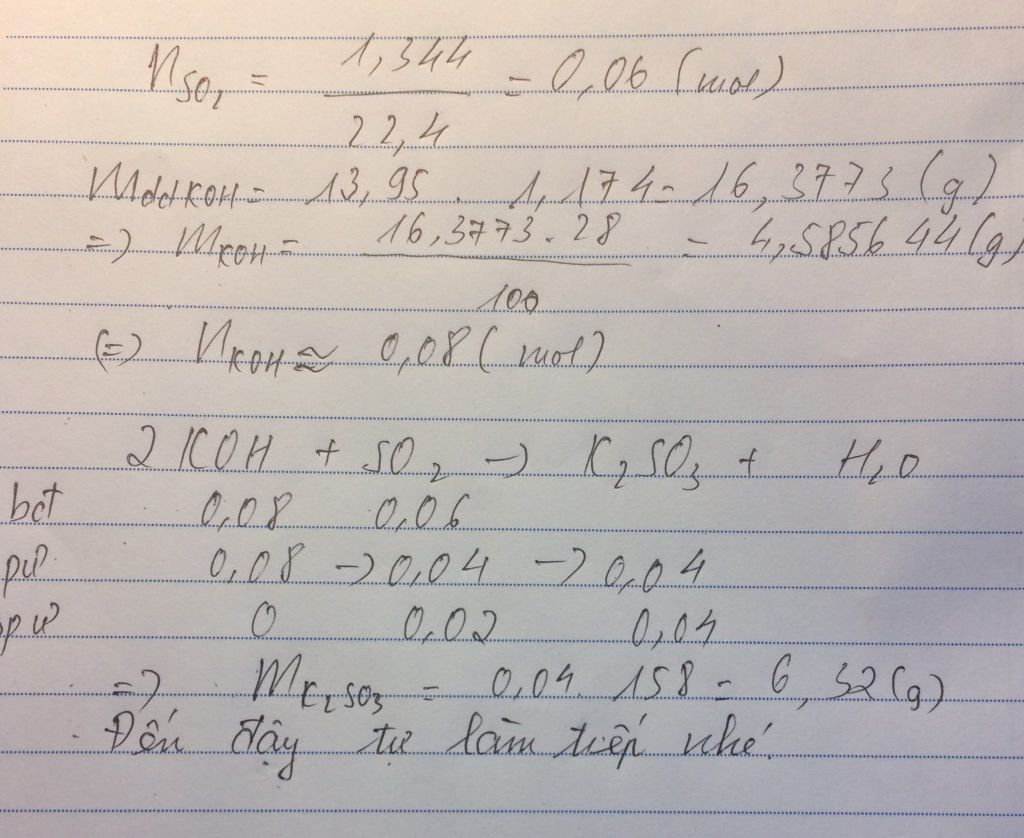 n_SO₂ = 1,344 / 22,4 = 0,06 (mol)
m_ddKOH = 13,95 . 1,174 = 16,3773 (g)
=> m_KOH = 16,3773 . 28 / 100 = 4,585644 (g)
(=) n_KOH ≈ 0,08 (mol)
2KOH + SO₂ -> K₂SO₃ + H₂O
bđ 0,08 0,06
pư 0,08 -> 0,04 -> 0,04
spư 0 0,02 0,04
=> m_K₂SO₃ = 0,04 . 158 = 6,32 (g)
Đến đậy tự làm tiếp nhé.